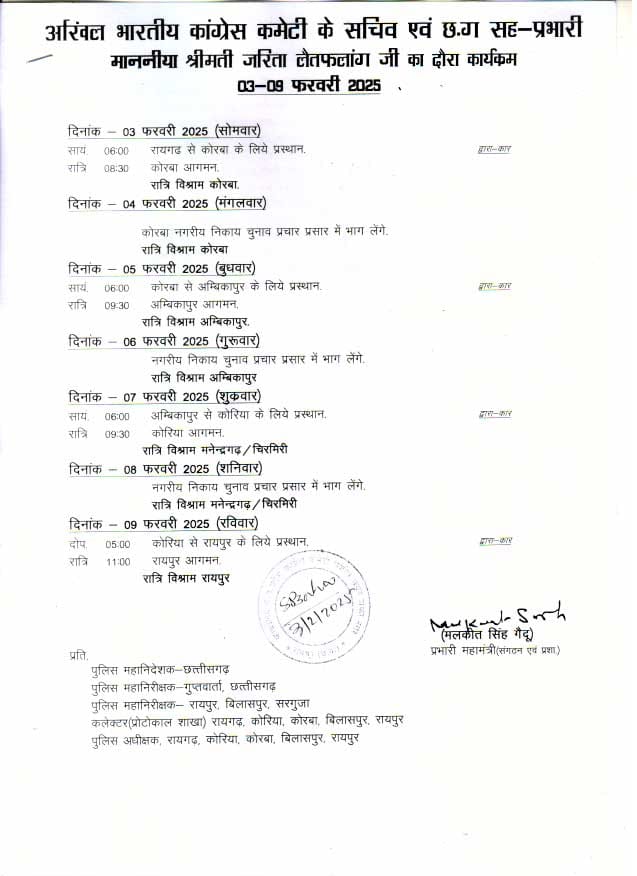 अखिल भारतीय कांग्रेस कमेटी के सचिव एवं छ.ग सह–प्रभारी
माननीया श्रीमती जरिता लैतफलांग जी का दौरा कार्यकम
03–09 फरवरी 2025
दिनांक – 03 फरवरी 2025 (सोमवार)
सायं. 06:00 रायगढ से कोरबा के लिये प्रस्थान. द्वारा–कार
रात्रि 08:30 कोरबा आगमन.
रात्रि विश्राम कोरबा.
दिनांक – 04 फरवरी 2025 (मंगलवार)
कोरबा नगरीय निकाय चुनाव प्रचार प्रसार में भाग लेंगे.
रात्रि विश्राम कोरबा
दिनांक – 05 फरवरी 2025 (बुधवार)
सायं. 06:00 कोरबा से अम्बिकापुर के लिये प्रस्थान. द्वारा–कार
रात्रि 09:30 अम्बिकापुर आगमन.
रात्रि विश्राम अम्बिकापुर.
दिनांक – 06 फरवरी 2025 (गुरूवार)
नगरीय निकाय चुनाव प्रचार प्रसार में भाग लेंगे.
रात्रि विश्राम अम्बिकापुर
दिनांक – 07 फरवरी 2025 (शुकवार)
सायं. 06:00 अम्बिकापुर से कोरिया के लिये प्रस्थान. द्वारा–कार
रात्रि 09:30 कोरिया आगमन.
रात्रि विश्राम मनेन्द्रगढ़/चिरमिरी
दिनांक – 08 फरवरी 2025 (शनिवार)
नगरीय निकाय चुनाव प्रचार प्रसार में भाग लेंगे.
रात्रि विश्राम मनेन्द्रगढ़/चिरमिरी
दिनांक – 09 फरवरी 2025 (रविवार)
दोप. 05:00 कोरिया से रायपुर के लिये प्रस्थान. द्वारा–कार
रात्रि 11:00 रायपुर आगमन.
रात्रि विश्राम रायपुर
3/2/2025
(मलकीत सिंह गैदू)
प्रभारी महामंत्री(संगठन एवं प्रशा.)
प्रति,
पुलिस महानिदेशक–छत्तीसगढ़
पुलिस महानिरीक्षक–गुप्तवार्ता, छत्तीसगढ़
पुलिस महानिरीक्षक– रायपुर, बिलासपुर, सरगुजा
कलेक्टर(प्रोटोकाल शाखा) रायगढ़, कोरिया, कोरबा, बिलासपुर, रायपुर
पुलिस अधीक्षक, रायगढ़, कोरिया, कोरबा, बिलासपुर, रायपुर